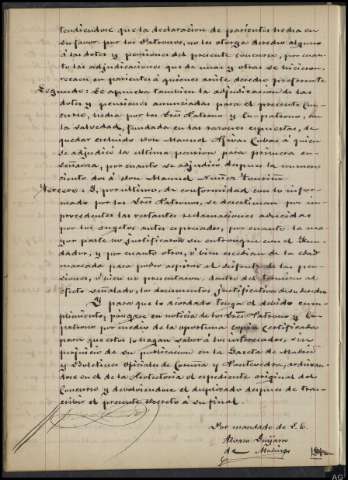 tendiendose que la declaracion de parientes hecha en
su favor por los Patronos, no les otorga derecho alguno
á las dotes y pensiones del presente concurso, por cuan
to las adjudicaciones de unas y otras se hicieron
en parientes á quienes asiste derecho preferente
Segundo: Se aprueba tambien la adjudicacion de las
dotes y pensiones anunciadas para el presente Con
curso, hecha por los Sres. Patrono y Co-patrono, con
la salvedad, fundada en las razones expuestas, de
quedar excluido Don Manuel Cubas á quien
se adjudicó la ultima pension para primera en
señanza, por cuanto se adjudicó
á Don Manuel Nuñez
Tercero: Y, por ultimo, de conformidad con lo infor
mado por los Sres. Patronos, se desestiman por im
procedentes las restantes reclamaciones aducidas
por los sugetos antes expresados, por cuanto la ma
yor parte no justificaron su entronque con el Fun
dador, y por cuanto otros, ó bien excedian de la edad
marcada para poder aspirar al disfrute de las pen
siones, ó bien no presentaron, dentro del termino al
efecto señalado, los documentos justificativos de su derecho
Y para que lo acordado tenga el debido cum
plimiento, póngase en noticia de los Sres. Patrono y Co-
patrono por medio de la oportuna copia certificada
para que estos lo hagan saber á los interesados, sin
perjuicio de su publicacion en la Gaceta de Madrid
y Boletines Oficiales de Coruña y Pontevedra, archivan
dose en el de la Protectoria el expediente original del
Concurso y devolviendose el duplicado despues de trans
cribir el presente decreto á su final.
Por mandado de S. E.
Alvaro
de
AG